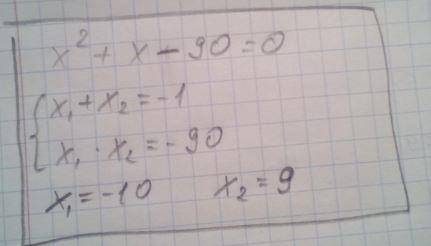 x² + x - 90 = 0
x₁ + x₂ = -1
x₁ · x₂ = -90
x₁ = -10 x₂ = 9